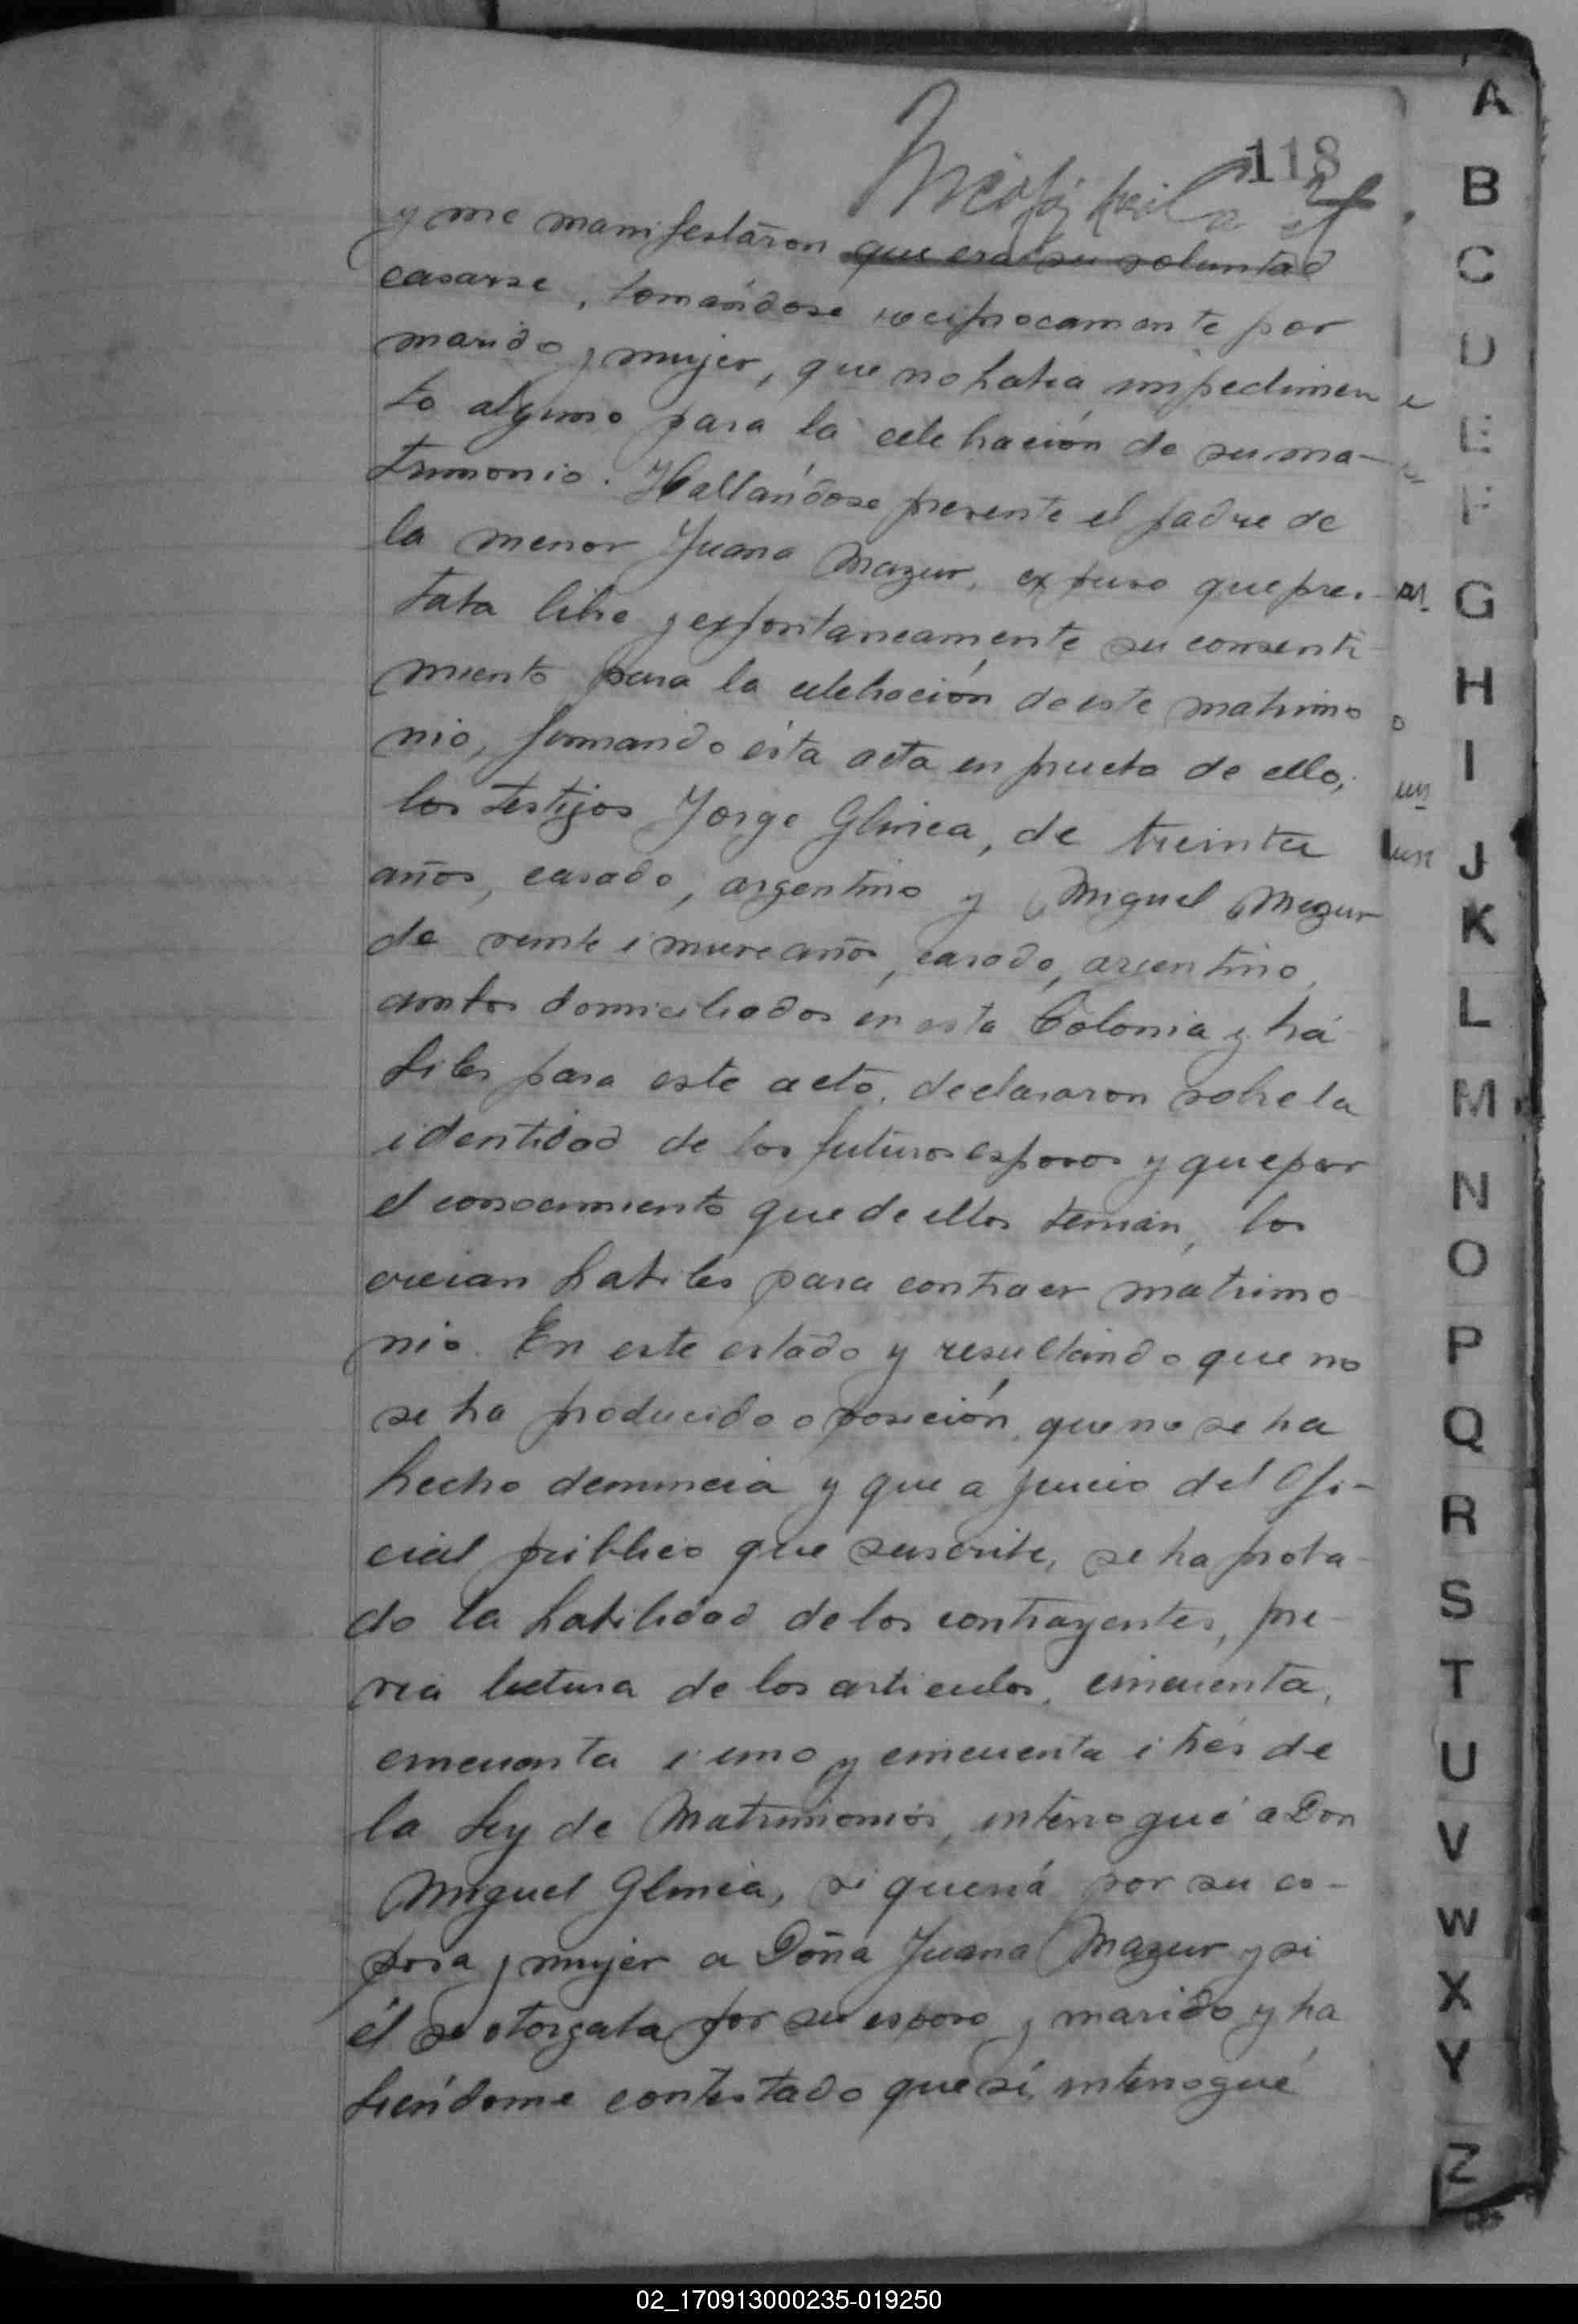 118
y me manifestáron que era su voluntad
casarse, tomándose reciprocamente por
marido y mujer, que no habia impedimen
to alguno para la celebración de su ma-
trimonio. Hallándose presente el padre de
la menor Juana Mazur, expuso que pres-
taba libre y expontaneamente su consenti-
miento para la celebración de este matrimo
nio, firmando ésta acta en prueba de ello,
los testigos Jorge Glinca, de treinta
años, casado, argentino y Miguel Mazur
de veinte i nueve años, casado, arcentino,
ambos domiciliados en esta Colonia y há
biles para este acto, declararon sobre la
identidad de los futuros esposos y que por
el conocimiento que de ellos tenian, los
creian habiles para contraer matrimo
nio. En este estádo y resultando que no
se ha producido oposición, que no se ha
hecho denuncia y que a juicio del Ofi-
cial público que suscribe, se ha proba-
do la habilidad de los contrayentes, pre-
via lectura de los articulos, cincuenta,
cincuenta i uno y cincuenta i trés de
la Ley de Matrimonios, interrogué a Don
Miguel Glinca, si queriá por su es-
posa y mujer a Doña Juana Mazur y si
él se otorgaba por su esposo y marido y ha
biéndome contestado que sí, interrogué
A
B
C
D
E
F
G
H
I
J
K
L
M
N
O
P
Q
R
S
T
U
V
W
X
Y
Z
02_170913000235-019250